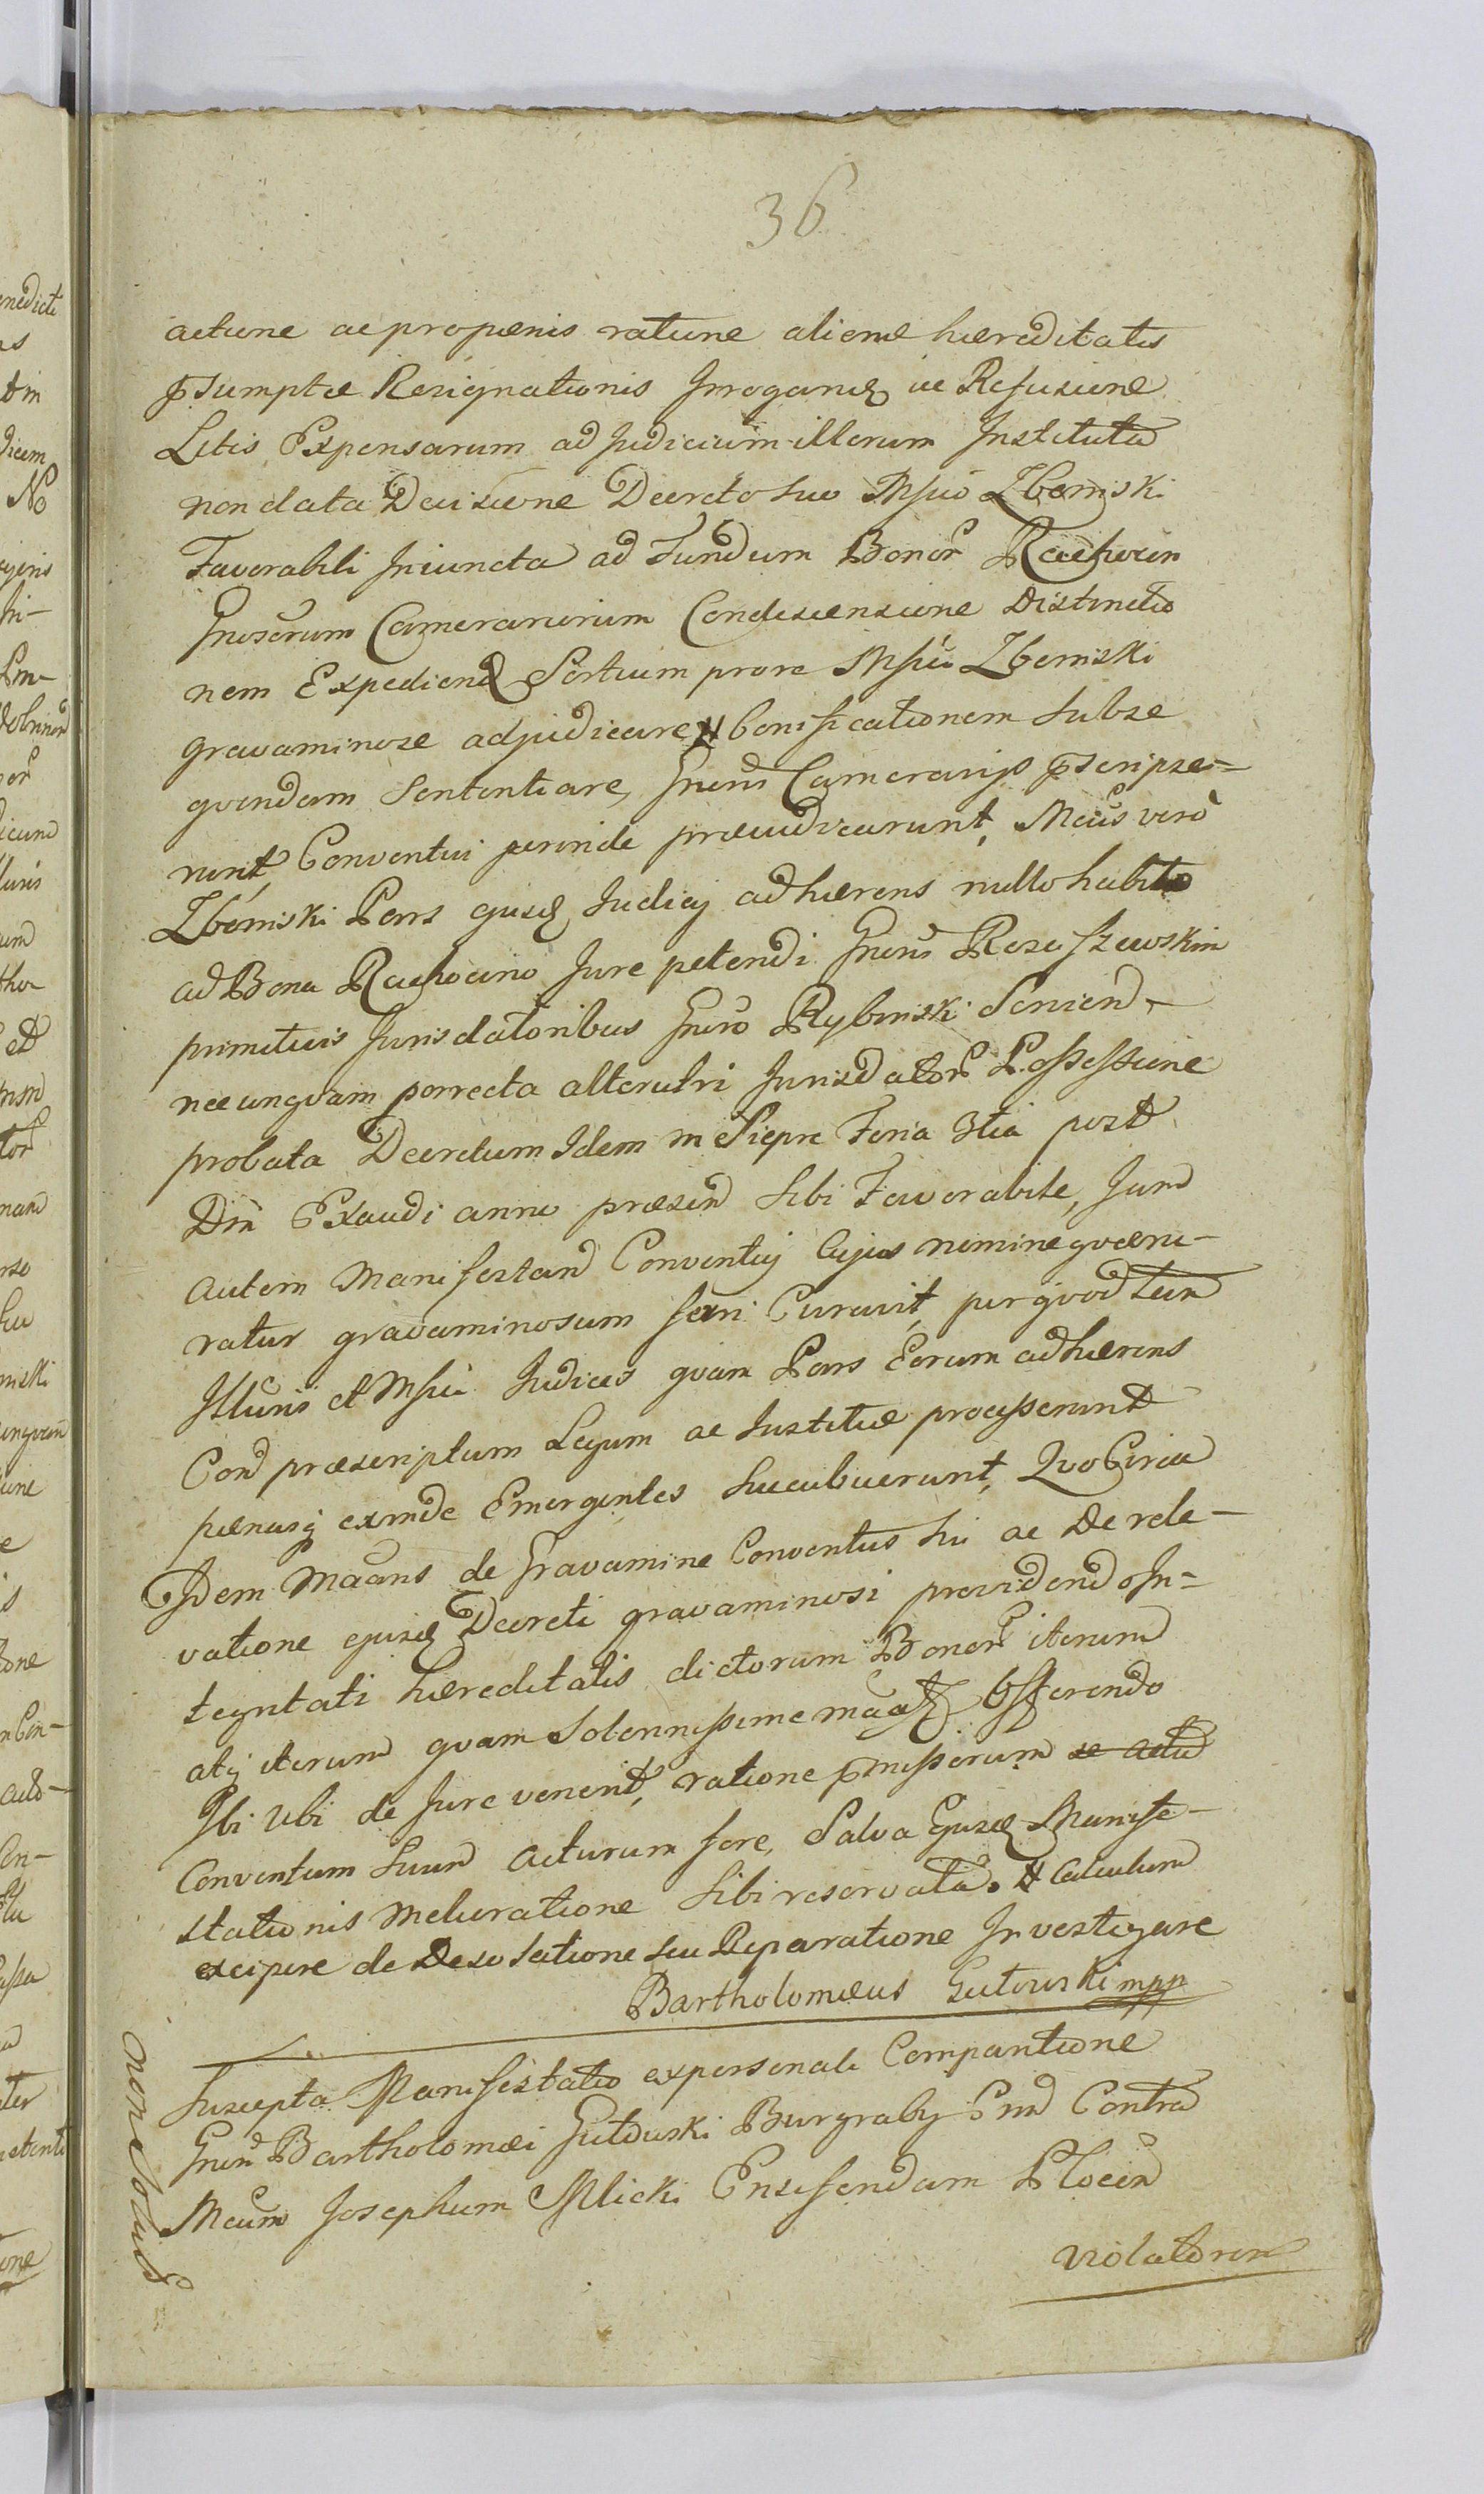 36
actione ac pro pœnis ratione alienæ hæreditatis
p̄sumptæ Resignationis Irrogand ac Refusione
Litis Expensarum ad Judicium illorum Instituta
non data Decisione Decreto suo Msuo Zboinski
Favorabili Iniuncta ad Fundum Bonor Rachocin
Gnosorum Camerariorum Condescensione Distinctio
nem Expediend Sortium prore Msuo Zboinski
gravaminose adjudicare et bonificationem subse
qvendam Sententiare, Gneri Camerarijs p̄scripse=
runt Conventui perinde præiudicarunt, Mcus verò
Zboinski Pars ejusd Judicij adhærens nullo habito
ad Bona Rachocino Jure petendi Gneris Rosciszewskim
primitivis Jurisdatoribus Gnero Rybinski Servien-
nec unqvam porrecta alterutri Jurisdator Possessione
probata Decretum Idem in Sierpc Feria 3tia post
Dm Exaudi anno præsen Sibi Favorabile, Jam
autem Manifestan Conventuj Cujus nomine qværi-
ratur gravaminosum ferri Curavit, per qvod tam
Illuris et Msui Judices qvam Pars Eorum adhærens
Con præscriptum Legum ac Justitiæ processerunt
pœnasq exinde Emergentes Succubuerunt, Qvo Circa
Idem Maans de Gravamine Conventus Sui ac De rele-
vatione ejusd Decreti gravaminosi providendo In-
tegritati hæreditatis dictorum Bonor iterum
atq iterum qvam Solennissime maatr Offerendo
Ibi Ubi de Jure venerit, ratione p̄missorum se actu
Conventum Suum acturum fore, Salva Ejusd Manife-
stationis Melioratione Sibi reservata. et Calculum
excipere de Desolatione seu Reparatione Investigare
Bartholomæus Gutowski mpp
Suscepta Manifestatio ex personali Comparitione
Gner Bartholomæi Gutowski Burgraby Cnn Contra
Mcum Josephum Mlicki Ensiferidam Plocen
violatorem
non solvit